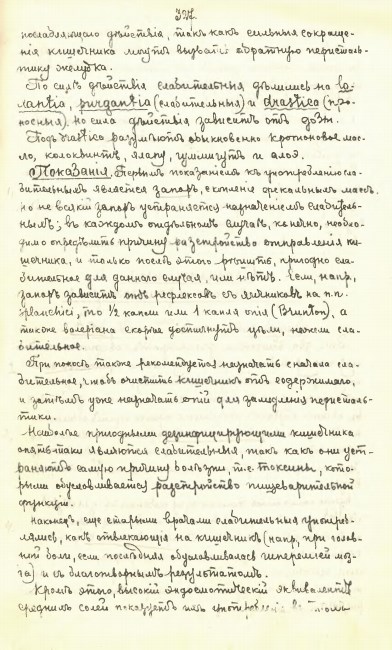 322.
послабляющаго дѣйствія, такъ какъ сильныя сокраще-
нія кишечника могутъ вызвать обратную перисталь-
тику желудка.
По силѣ дѣйствія слабительныя дѣлились на le-
nantia, purgantia (слабительныя) и drastica (про-
носныя), но сила дѣйствія зависитъ отъ дозы.
Подъ drastica разумѣютъ обыкновенно кротоновое мас-
ло, колоквинтъ, ялапу, гуммигутъ и алоэ.
Показанія. Первымъ показаніемъ къ употребленію сла-
бительныхъ является запоръ, скопленіе фекальныхъ массъ.
но не всякій запоръ устраняется назначеніемъ слабитель-
нымъ; въ каждомъ отдѣльномъ случаѣ, конечно, необхо-
димо опредѣлить причину разстройства отправленія ки-
шечника, и только послѣ этого рѣшить, пригодно сла-
бительное для даннаго случая, или нѣтъ. Если, напр.,
запоръ зависитъ отъ рефлексовъ съ яичниковъ на n.n.
splanchnici, то 1/2 капли или 1 капля опія (Brunton), а
также валеріана скорѣе достигнутъ цѣли, нежели сла-
бительное.
При поносѣ также рекомендуется назначать сначала сла-
бительное, чтобъ очистить кишечникъ отъ содержимаго,
и затѣмъ уже назначать опій для замедленія перисталь-
тики.
Наиболѣе пригодными дезинфицирующими кишечника
опять таки являются слабительныя, такъ какъ они уст-
раняютъ самую причину болѣзни, т.е. токсины, кото-
рыми обусловливается разстройство пищеварительной
функціи.
Наконецъ, еще старыми врачами слабительныя употреб-
лялись, какъ отвлекающія на кишечникъ (напр. при голов-
ной боли, если послѣдняя обусловливалась гипереміей моз-
га) и съ благотворнымъ результатомъ.
Кромѣ этого, высокій эндосмотическій эквивалентъ
среднихъ солей показуетъ ихъ